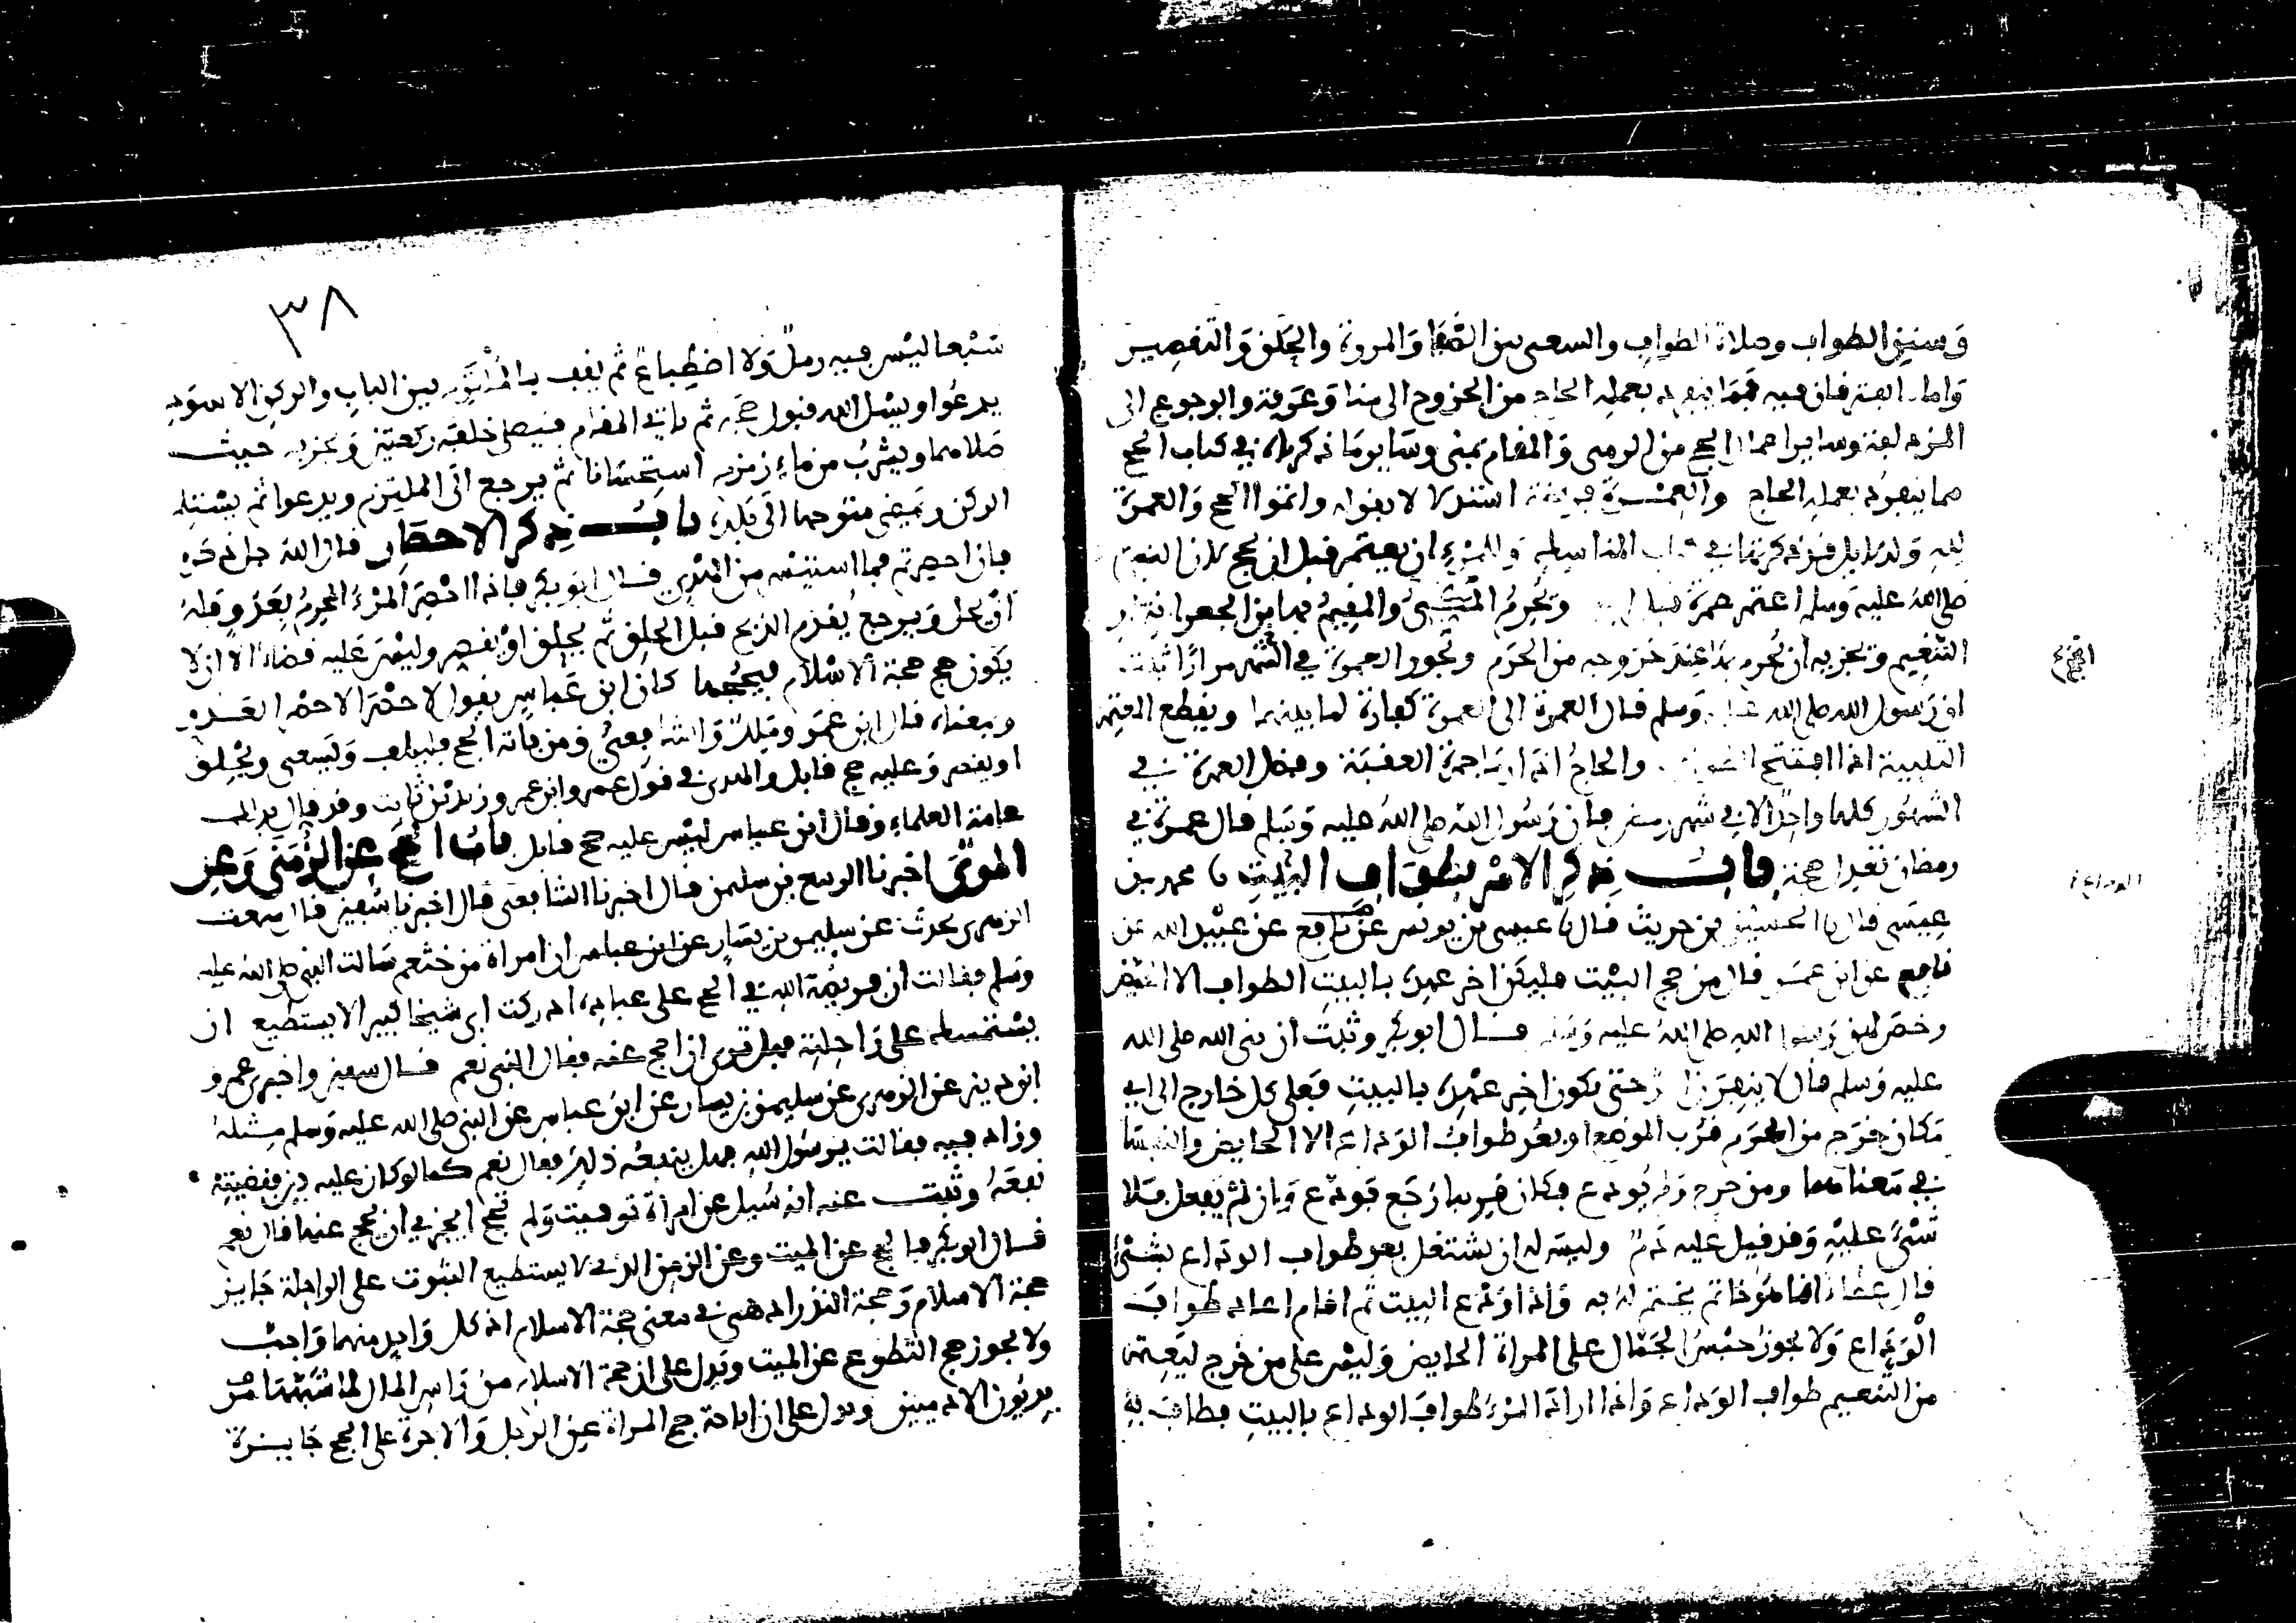 وسنن الطواف وصلاة الطواف والسعي بين الصفا والمروة والحلق والتقصير
فيه فيما ينفرد بعمله الحاج من الخروج الى منا وعرفة والوجوع الى
المزدلفة وساير اعمال الحج من الرمي والمقام بمنى وساير ما ذكرناه في كتاب الحج
مما ينفرد بعمله الحاج والعمرة فريضة استدلالا بقوله واتموا الحج والعمرة
لله في كتاب المناسك وللمرء ان يعتمر قبل ان يحج لان النبي
صلى الله عليه وسلم اعتمر عمرة قبل ويحرم المكي والمقيم بها من الجعرانة او
التنعيم ويجزيه ان يحرم بها عند خروجه من الحرم وتجوز العمرة في الشهر مرارا
ان رسول الله صلى الله عليه وسلم قال العمرة الى العمرة كفارة لما بينهما ويقطع المعتمر
التلبية اذا افتتح الطواف والحاج اذا رما جمرة العقبة وفضل العمرة في
الشهور كلها واحد الا في شهر رمضان فان رسول الله صلى الله عليه وسلم قال عمرة في
رمضان تعدل حجة باب ذكر الامر بطواف البيت نا محمد بن
عيسى قال نا الحسين بن حريث قال نا عيسى بن يونس عن نافع عن عبيد الله عن
نافع عن ابن عمر قال من حج البيت فليكن اخر عهده بالبيت الطواف الا الحيض
ورخص لهن رسول الله صلى الله عليه وسلم قال ابو بكر وثبت ان نبي الله صلى الله
عليه وسلم قال لا ينفرن حتى يكون اخر عهده بالبيت فعلى كل خارج الى اي
مكان خرج من الحرم قرب الموضع او بعد طواف الوداع الا الحايض والنفسا
في معناها ومن خرج ولم يودع فكان قريبا رجع فودع وان لم يفعل فلا
شيء عليه وقد قيل عليه دم وليس له ان يشتغل بعد طواف الوداع بشيء
قال عطا انما هو خاتم يختم له به واذا ودع البيت ثم اقام اعاد طواف
الوداع ولا يجوز حبس الجمال على المراة الحايض وليس على من خرج ليعتمر
من التنعيم طواف الوداع واذا اراد المرء طواف الوداع بالبيت فطاف به
الوداع
٣٨
سبعا ليس فيه رمل ولا اضطباع ثم يقف بالملتزم بين الباب والركن الاسود
يدعوا ويسل الله قبول حجه ثم ياتي المقام فيصلي خلفه ركعتين ويجزيه حيث
صلاهما ويشرب من ماء زمزم استحسانا ثم يرجع الى الملتزم ويدعوا ثم يستلم
الركن ويمضي متوجها الى بلده باب ذكر الاحصار قال الله جل ذكره
فان احصرتم فما استيسر من الهدي قال ابو بكر فاذا احصر المرء المحرم بعدو فله
ان يحل ويرجع يقدم الذبح قبل الحلق ثم يحلق او يقصر وليس عليه قضاء الا ان لا
يكون حج حجة الاسلام فيحجها كان ابن عباس يقول لا حصر الا حصر العدو
وبمعناه قال ابن عمر وملك والشافعي ومن فاته الحج فليطف وليسعى ويحلق
او يقصر وعليه حج قابل والهدي في قول عمر وابن عمر وزيد بن ثابت وقد قال
عامة العلماء وقال ابن عباس ليس عليه حج قابل باب الحج عن الزمنى وعن
الموتى اخبرنا الربيع بن سليمن قال اخبرنا الشافعي قال اخبرنا سفين قال سمعت
الزهري يحدث عن سليمن بن يسار عن ابن عباس ان امراة من خثعم سالت النبي صلى الله عليه
وسلم فقالت ان فريضة الله في الحج على عباده ادركت ابي شيخا كبيرا لا يستطيع ان
يستمسك على راحلته فهل ترى ان احج عنه فقال النبي نعم قال سفين واخبرني عمرو
ابن دينر عن الزهري عن سليمن بن يسار عن ابن عباس عن النبي صلى الله عليه وسلم مثله
وزاد فيه فقالت يرسول الله فهل ينفعه ذلك فقال نعم كما لو كان عليه دين فقضيته
نفعه وثبت عنه انه سيل عن امراة توفيت ولم تحج ايجزي ان يحج عنها قال نعم
قال ابو بكر فالحج عن الميت وعن الزمن الذي لا يستطيع الثبوت على الراحلة جايز
حجة الاسلام وحجة النذر اذ هي في معنى حجة الاسلام اذ كل واحد منهما واجب
ولا يجوز حج التطوع عن الميت ويدل على ان حجة الاسلام من راس المال لما شبهها
بديون الادميين ويدل على ان اباحة حج المراة عن الرجل والاجرة على الحج جايزة